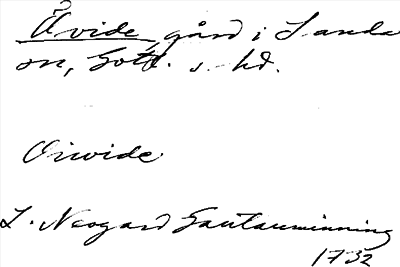 Åvide, gård i Sanda
sn, Gotl. s. hd.
Oivide
L. Neogard Gautauminning
1732